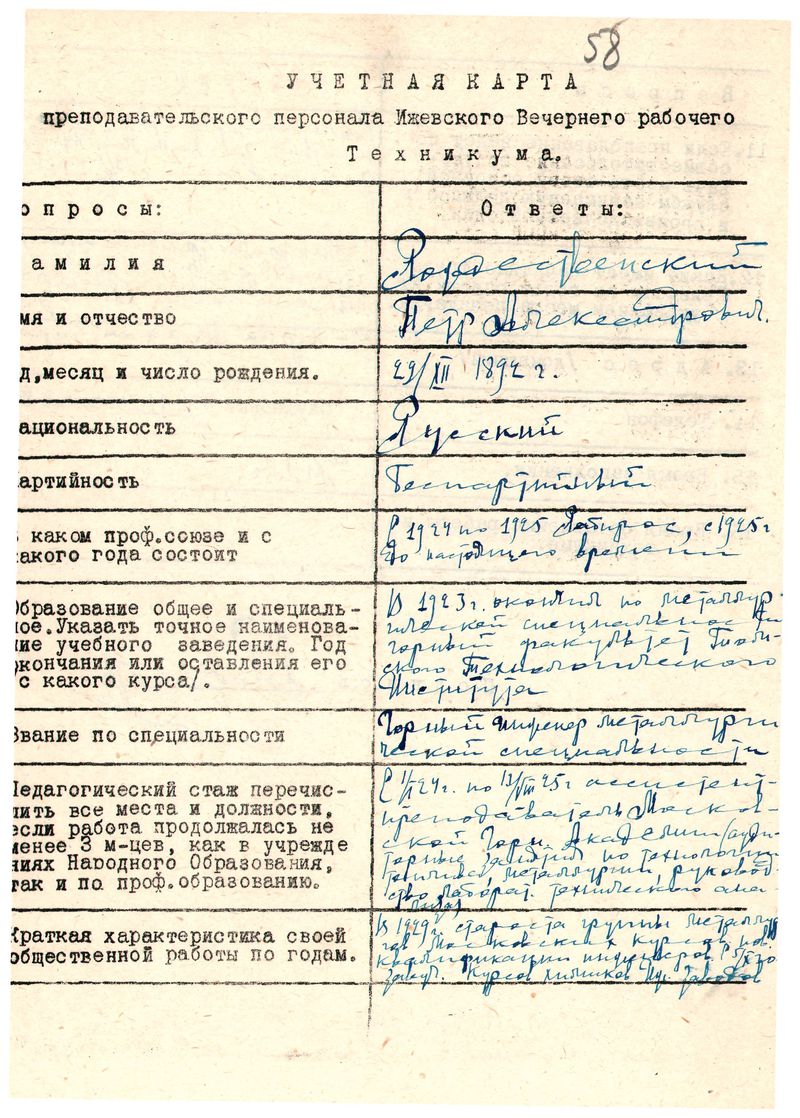 58
УЧЕТНАЯ КАРТА
преподавательского персонала Ижевского Вечернего рабочего
Техникума.
опросы: Ответы:
амилия Рождественский
мя и отчество Петр Александрович.
д,месяц и число рождения. 29/XII 1892 г.
ациональность Русский
артийность Беспартийный
каком проф.союзе и с С 1924 по 1925 , с 1925 г
какого года состоит до настоящего времени
Образование общее и специаль- В 1923 г. окончил по металлур-
ное.Указать точное наименова- гической специальности
ние учебного заведения. Год горный факультет Том-
окончания или оставления его ского Технологического
/с какого курса/. Института
Звание по специальности Горный инженер металлурги
ческой специальности
Педагогический стаж перечис- С 1924 г. по 25 г ассистент-
лить все места и должности, преподаватель Москов-
если работа продолжалась не ской Горн. Академии
менее 3 м-цев, как в учрежде торные занятия по технологии
ниях Народного Образования, металлургии, руковод-
так и по проф.образованию. ство лаборат. технического ана-
лиза,
Краткая характеристика своей В 1929 г. староста группы металлур
общественной работы по годам. гов Московских курсов пов.
квалификации инженеров.
Курсов заводов